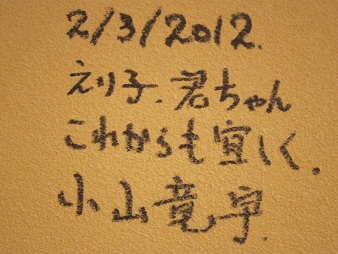 2/3/2012.
えり子.君ちゃん
これからも宜しく.
小山竜宇.